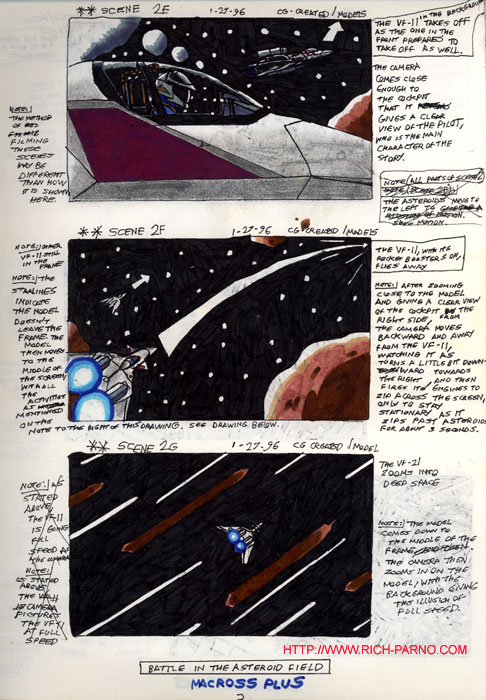 ** SCENE 2E 1-27-96 CG-CREATED/MODELS
IN THE BACKGROUND
THE VF-11 TAKES OFF
AS THE ONE IN THE
FRONT PREPARES TO
TAKE OFF AS WELL.
THE CAMERA
COMES CLOSE
ENOUGH TO
THE COCKPIT
THAT IT
GIVES A CLEAR
VIEW OF THE PILOT,
WHO IS THE MAIN
CHARACTER OF THE
STORY.
NOTE:
THE METHOD
OF
FILMING
THESE
SCENES
MAY BE
DIFFERENT
THAN HOW
IT IS SHOWN
HERE.
NOTE (ALL PARTS OF SCENE
THE ASTEROIDS MOVE TO
THE LEFT TO
** SCENE 2F 1-27-96 CG CREATED/MODELS
NOTE: OTHER
VF-11 STILL
IN THE
FRAME
NOTE: THE
STARLINES
INDICATE
THE MODEL
DOESN'T
LEAVE THE
FRAME. THE
MODEL
THEN MOVES
TO THE
MIDDLE OF
THE SCREEN
WITH ALL
THE
ACTIVITIES
AS
MENTIONED
ON THE
NOTE TO THE RIGHT OF THIS DRAWING. SEE DRAWING BELOW.
THE VF-11, WITH ITS
ROCKET BOOSTERS ON,
FLIES AWAY
NOTE: AFTER ZOOMING
CLOSE TO THE MODEL
AND GIVING A CLEAR VIEW
OF THE COCKPIT THE
RIGHT SIDE, FROM
THE CAMERA MOVES
BACKWARD AND AWAY
FROM THE VF-11,
WATCHING IT AS
TURNS A LITTLE BIT DOWN-
WARD TOWARDS
THE RIGHT AND THEN
FIRES ITS ENGINES TO
ZIP ACROSS THE SCREEN,
ONLY TO STAY
STATIONARY AS IT
ZIPS PAST ASTEROIDS
FOR ABOUT 3 SECONDS.
** SCENE 2G 1-27-96 CG CREATED/MODEL
NOTE: AS
STATED
ABOVE,
THE VF-11
IS GOING
FULL
SPEED AS
THE CAMERA
NOTE:
AS STATED
ABOVE,
THE VF-11
CAMERA
PICTURES
THE VF-11
AT FULL
SPEED
THE VF-21
ZOOMS INTO
DEEP SPACE
NOTE: THE MODEL
COMES DOWN TO
THE MIDDLE OF THE
FRAME,
THE CAMERA THEN
ZOOMS IN ON THE
MODEL, WITH THE
BACKGROUND GIVING
THE ILLUSION OF
FULL SPEED.
HTTP://WWW.RICH-PARNO.COM
BATTLE IN THE ASTEROID FIELD
MACROSS PLUS